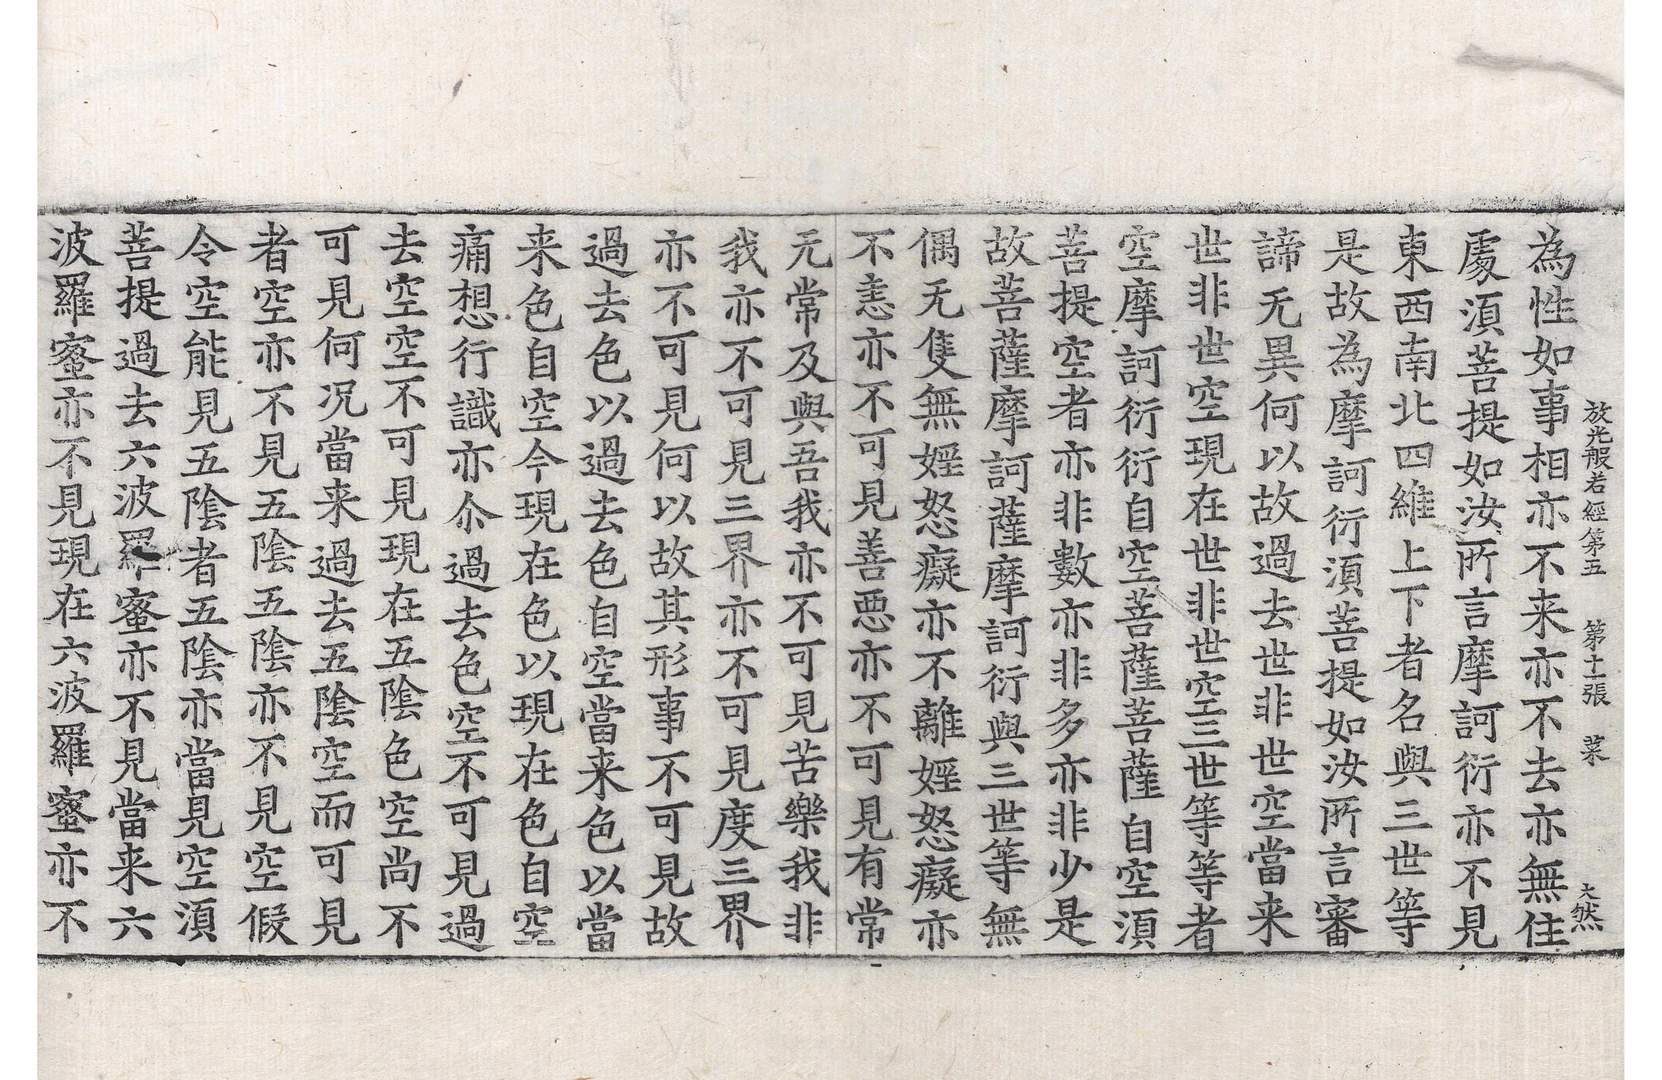 放光般若經第五 第十二張 菜 大然
為性如事相亦不来亦不去亦無住
處湏菩提如汝所言摩訶衍亦不見
東西南北四維上下者名與三世等
是故為摩訶衍湏菩提如汝所言審
諦无異何以故過去世非世空當来
世非世空現在世非世空三世等等者
空摩訶衍衍自空菩薩菩薩自空湏
菩提空者亦非數亦非多亦非少是
故菩薩摩訶薩摩訶衍與三世等無
偶无隻無婬怒癡亦不離婬怒癡亦
不恚亦不可見善惡亦不可見有常
无常及與吾我亦不可見苦樂我非
我亦不可見三界亦不可見度三界
亦不可見何以故其形事不可見故
過去色以過去色自空當来色以當
来色自空今現在色以現在色自空
痛想行識亦尒過去色空不可見過
去空空不可見現在五陰色空尚不
可見何况當来過去五陰空而可見
者空亦不見五陰五陰亦不見空假
令空能見五陰者五陰亦當見空湏
菩提過去六波羅蜜亦不見當来六
波羅蜜亦不見現在六波羅蜜亦不